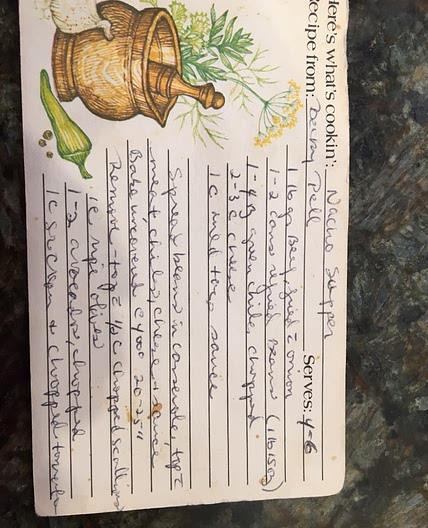 Here's what's cookin': Nacho Supper
Recipe from: Becky Pell Serves: 4-6
1 lb gr Beef, fried c̄ onion
1-2 cans refried beans (1 lb 15oz)
1-4oz green chile, chopped
2-3 c cheese
1 c med taco sauce
Spread beans in casserole, top c̄
meat, chiles, cheese & sauce
Bake uncovered @ 400° 20-25"
Remove - top c̄ ½ c chopped scallions
1 c ripe olives
1-2 avocados, chopped
1 c sr cream & chopped tomato